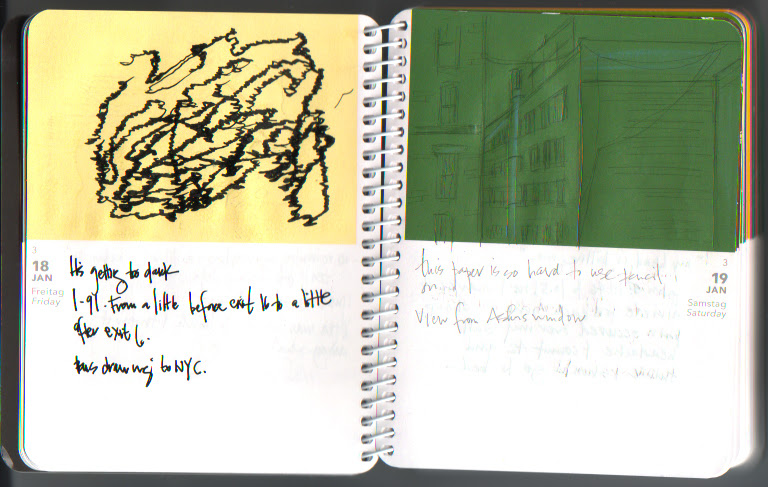 3
18
JAN
Freitag
Friday
It's getting too dark
I-91. From a little before exit 16 to a little
after exit 6.
bus drawing to NYC.
3
19
JAN
Samstag
Saturday
this paper is so hard to use pencil
on
View from window